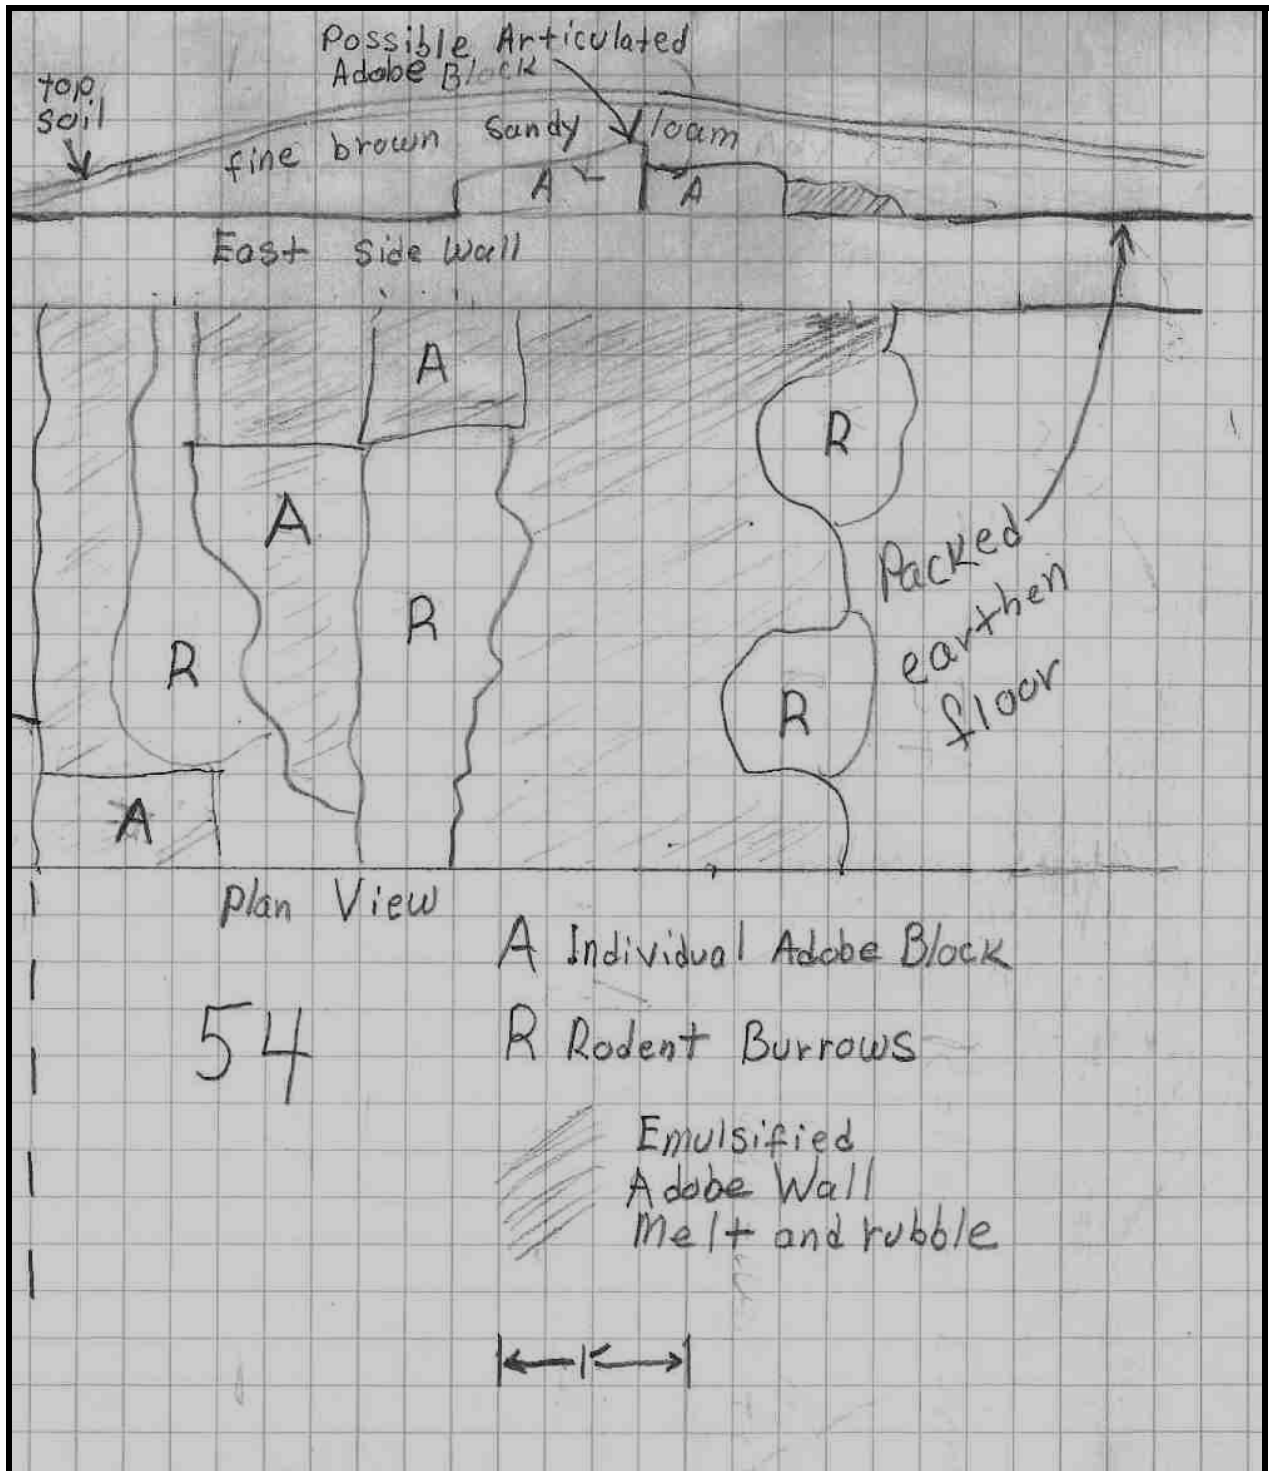 Possible Articulated
Adobe Block
top
soil
fine brown sandy loam
A A
East Side Wall
A
R
A
Packed
earthen
floor
R
R
R
A
Plan View
A Individual Adobe Block
54
R Rodent Burrows
Emulsified
Adobe Wall
Melt and rubble
1'